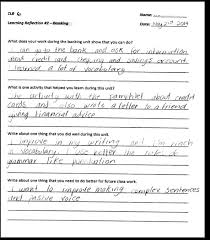 CLB 6
Name:
Learning Reflection #2 – Banking
Date: May 2nd 2019
What does your work during the banking unit show that you can do?
I can go to the bank and ask for information
about credit card, cheqing and savings account
I learned a lot of vocabulary
What is one activity that helped you learn during this unit?
The activity with the pamphlet about credit
cards and also wrote a letter to a friend
giving financial advice
Write about one thing that you did well during this unit.
I improve in my writing and I'm rich
vocabulary. I use better the rules of
grammar like puctuation
Write about one thing that you need to do better for future class work.
I want to improve making complex sentences
and passive voice